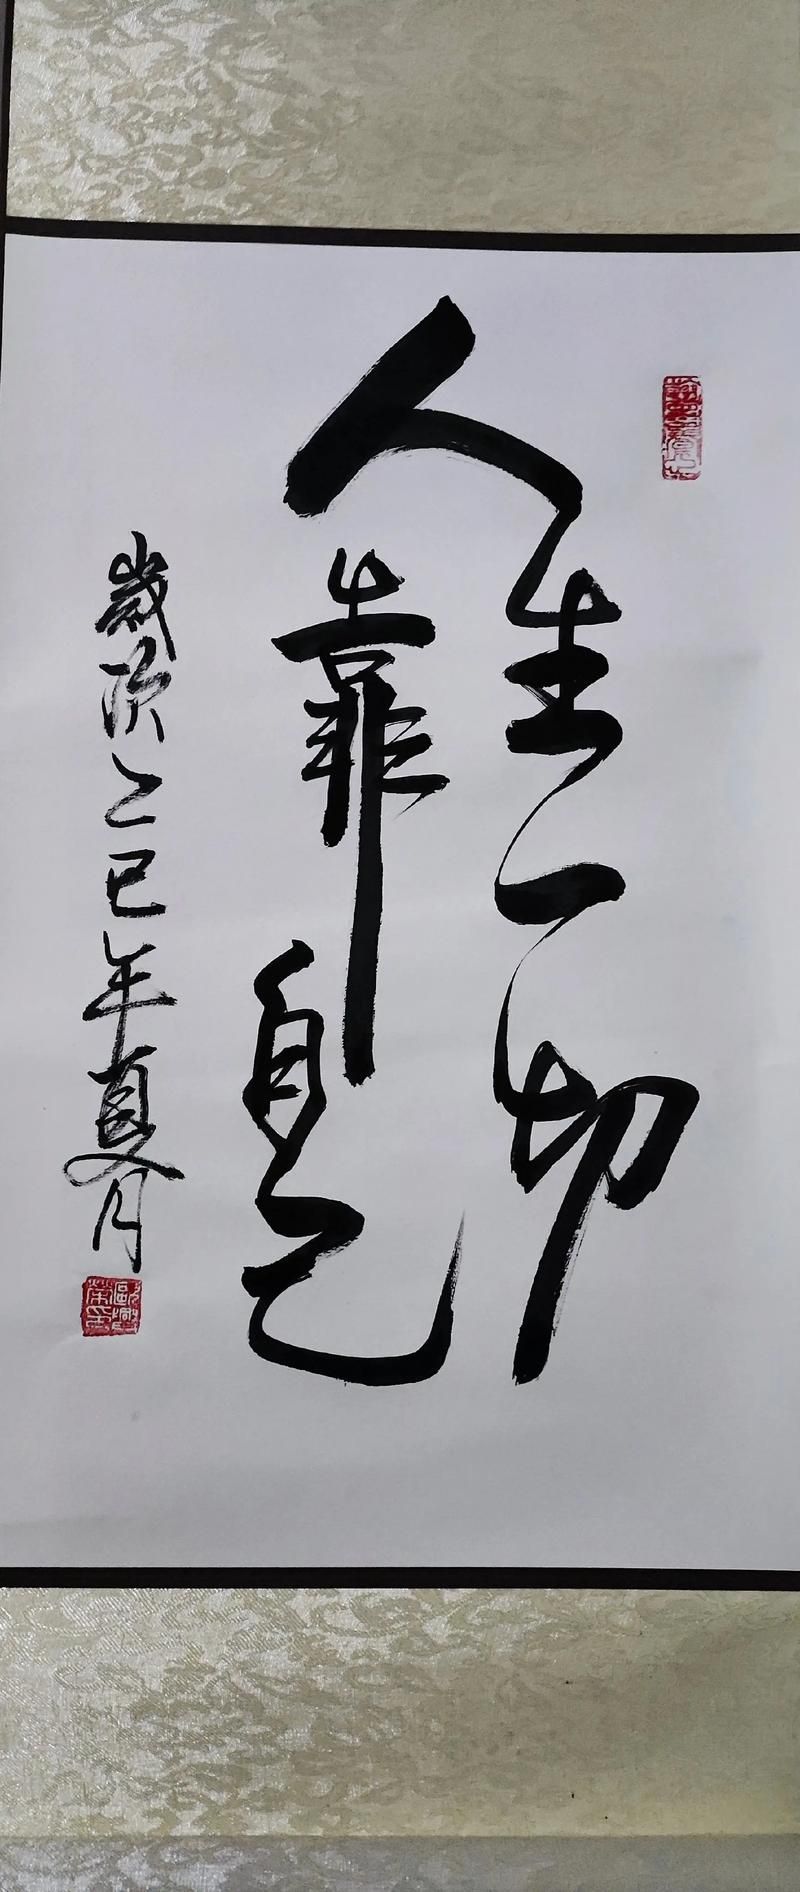 人生一切
靠自己
歲次乙巳年夏月